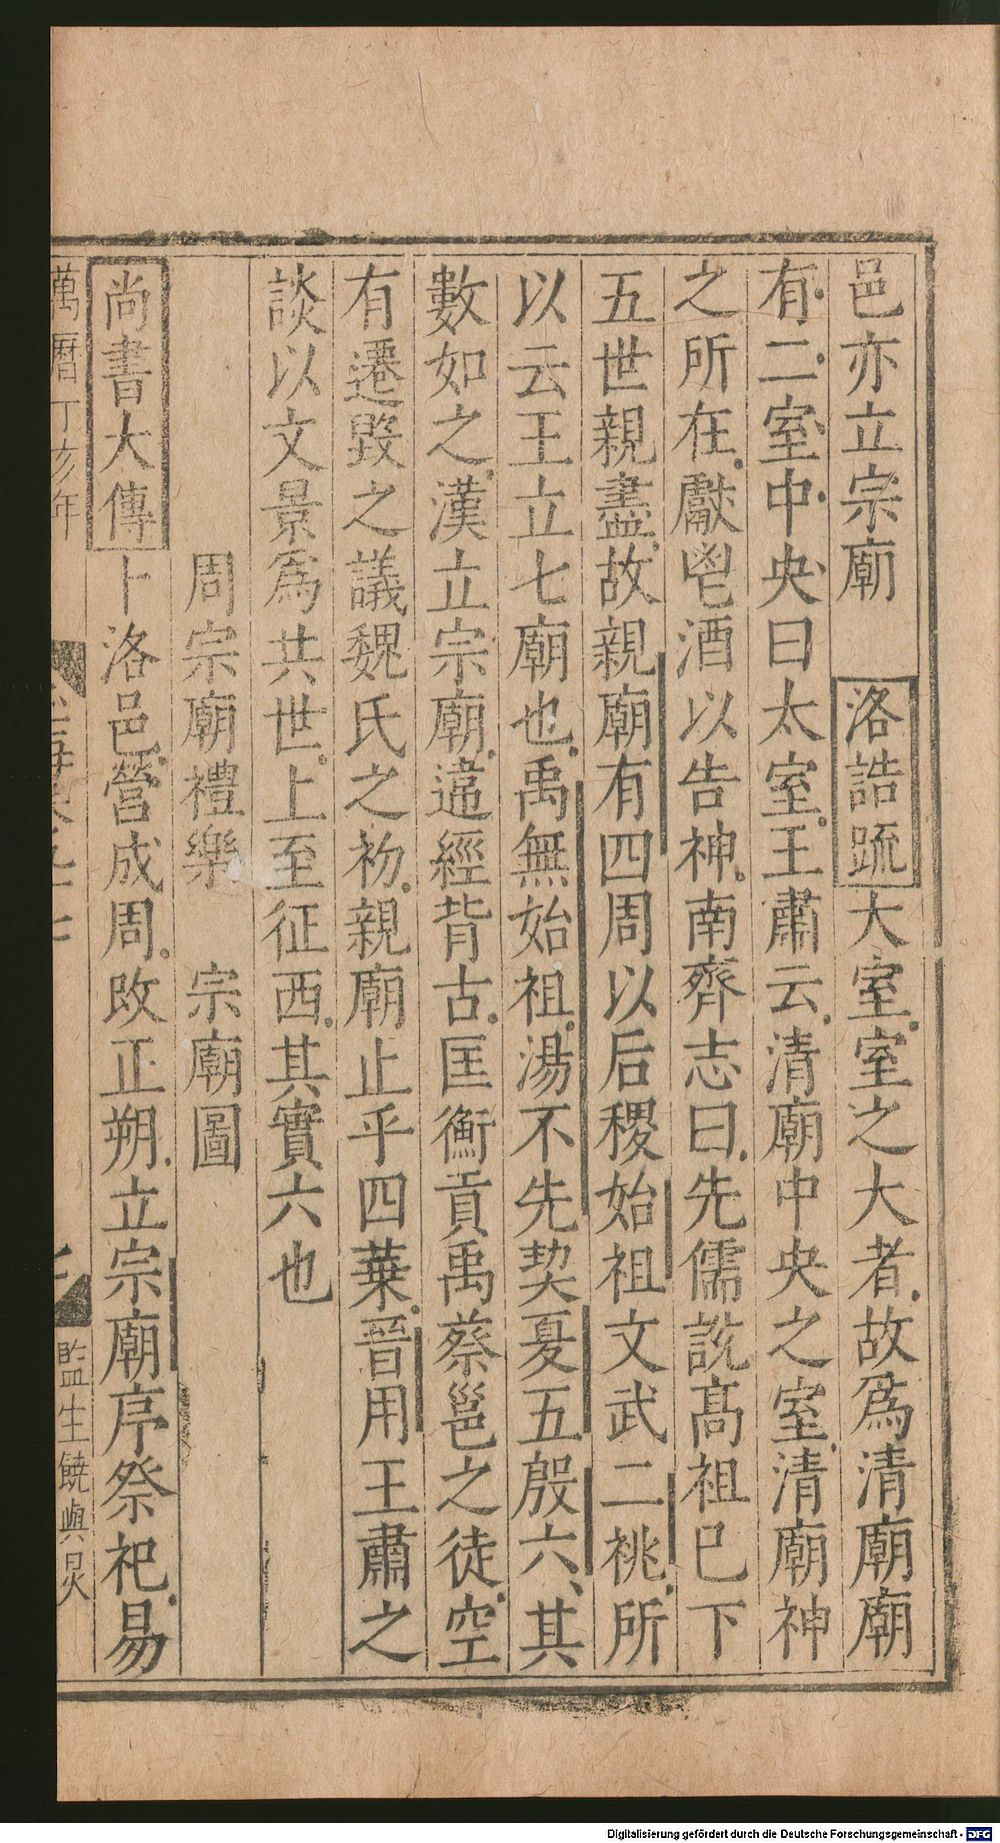 邑亦立宗廟　洛誥疏大室室之大者故爲清廟廟
有二室中央曰太室王肅云清廟中央之室清廟神
之所在獻鬯酒以告神南齊志曰先儒說髙祖巳下
五世親盡故親廟有四周以后稷始祖文武二祧所
以云王立七廟也禹無始祖湯不先契夏五殷六其
數如之漢立宗廟違經背古匡衡貢禹蔡邕之徒空
有遷毀之議魏氏之初親廟止乎四葉晉用王肅之
談以文景爲共世上至征西其實六也
周宗廟禮樂　宗廟圖
尚書大傳卜洛邑營成周改正朔立宗廟序祭祀易
萬曆丁亥年
監生饒與炅
Digitalisierung gefördert durch die Deutsche Forschungsgemeinschaft - DFG